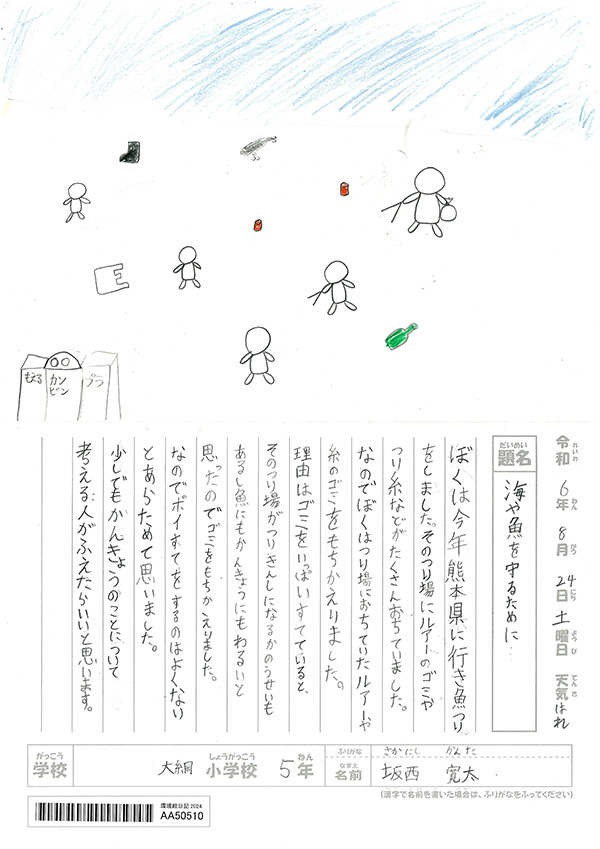 もえる
カン
ビン
プラ
E
令和6年8月24日土曜日 天気はれ
れいわ ねん がつ にち ようび てんき
だいめい
題名
海や魚を守るために
ぼくは今年熊本県に行き魚つり
をしました。そのつり場にルアーのゴミや
つり糸などがたくさんおちていました。
なのでぼくはつり場におちていたルアーや
糸のゴミをもちかえりました。
理由はゴミをいっぱいすてていると、
そのつり場がつりきんしになるかのうせいも
あるし魚にもかんきょうにもわるいと
思ったのでゴミをもちかえりました。
なのでポイすてをするのはよくない
とあらためて思いました。
少しでもかんきょうのことについて
考える人がふえたらいいと思います。
がっこう しょうがっこう ねん
学校 大綱 小学校 5年
ふりがな さかにし かんた
なまえ
名前 坂西 寛太
(漢字で名前を書いた場合は、ふりがなをふってください)
環境絵日記2024
AA50510